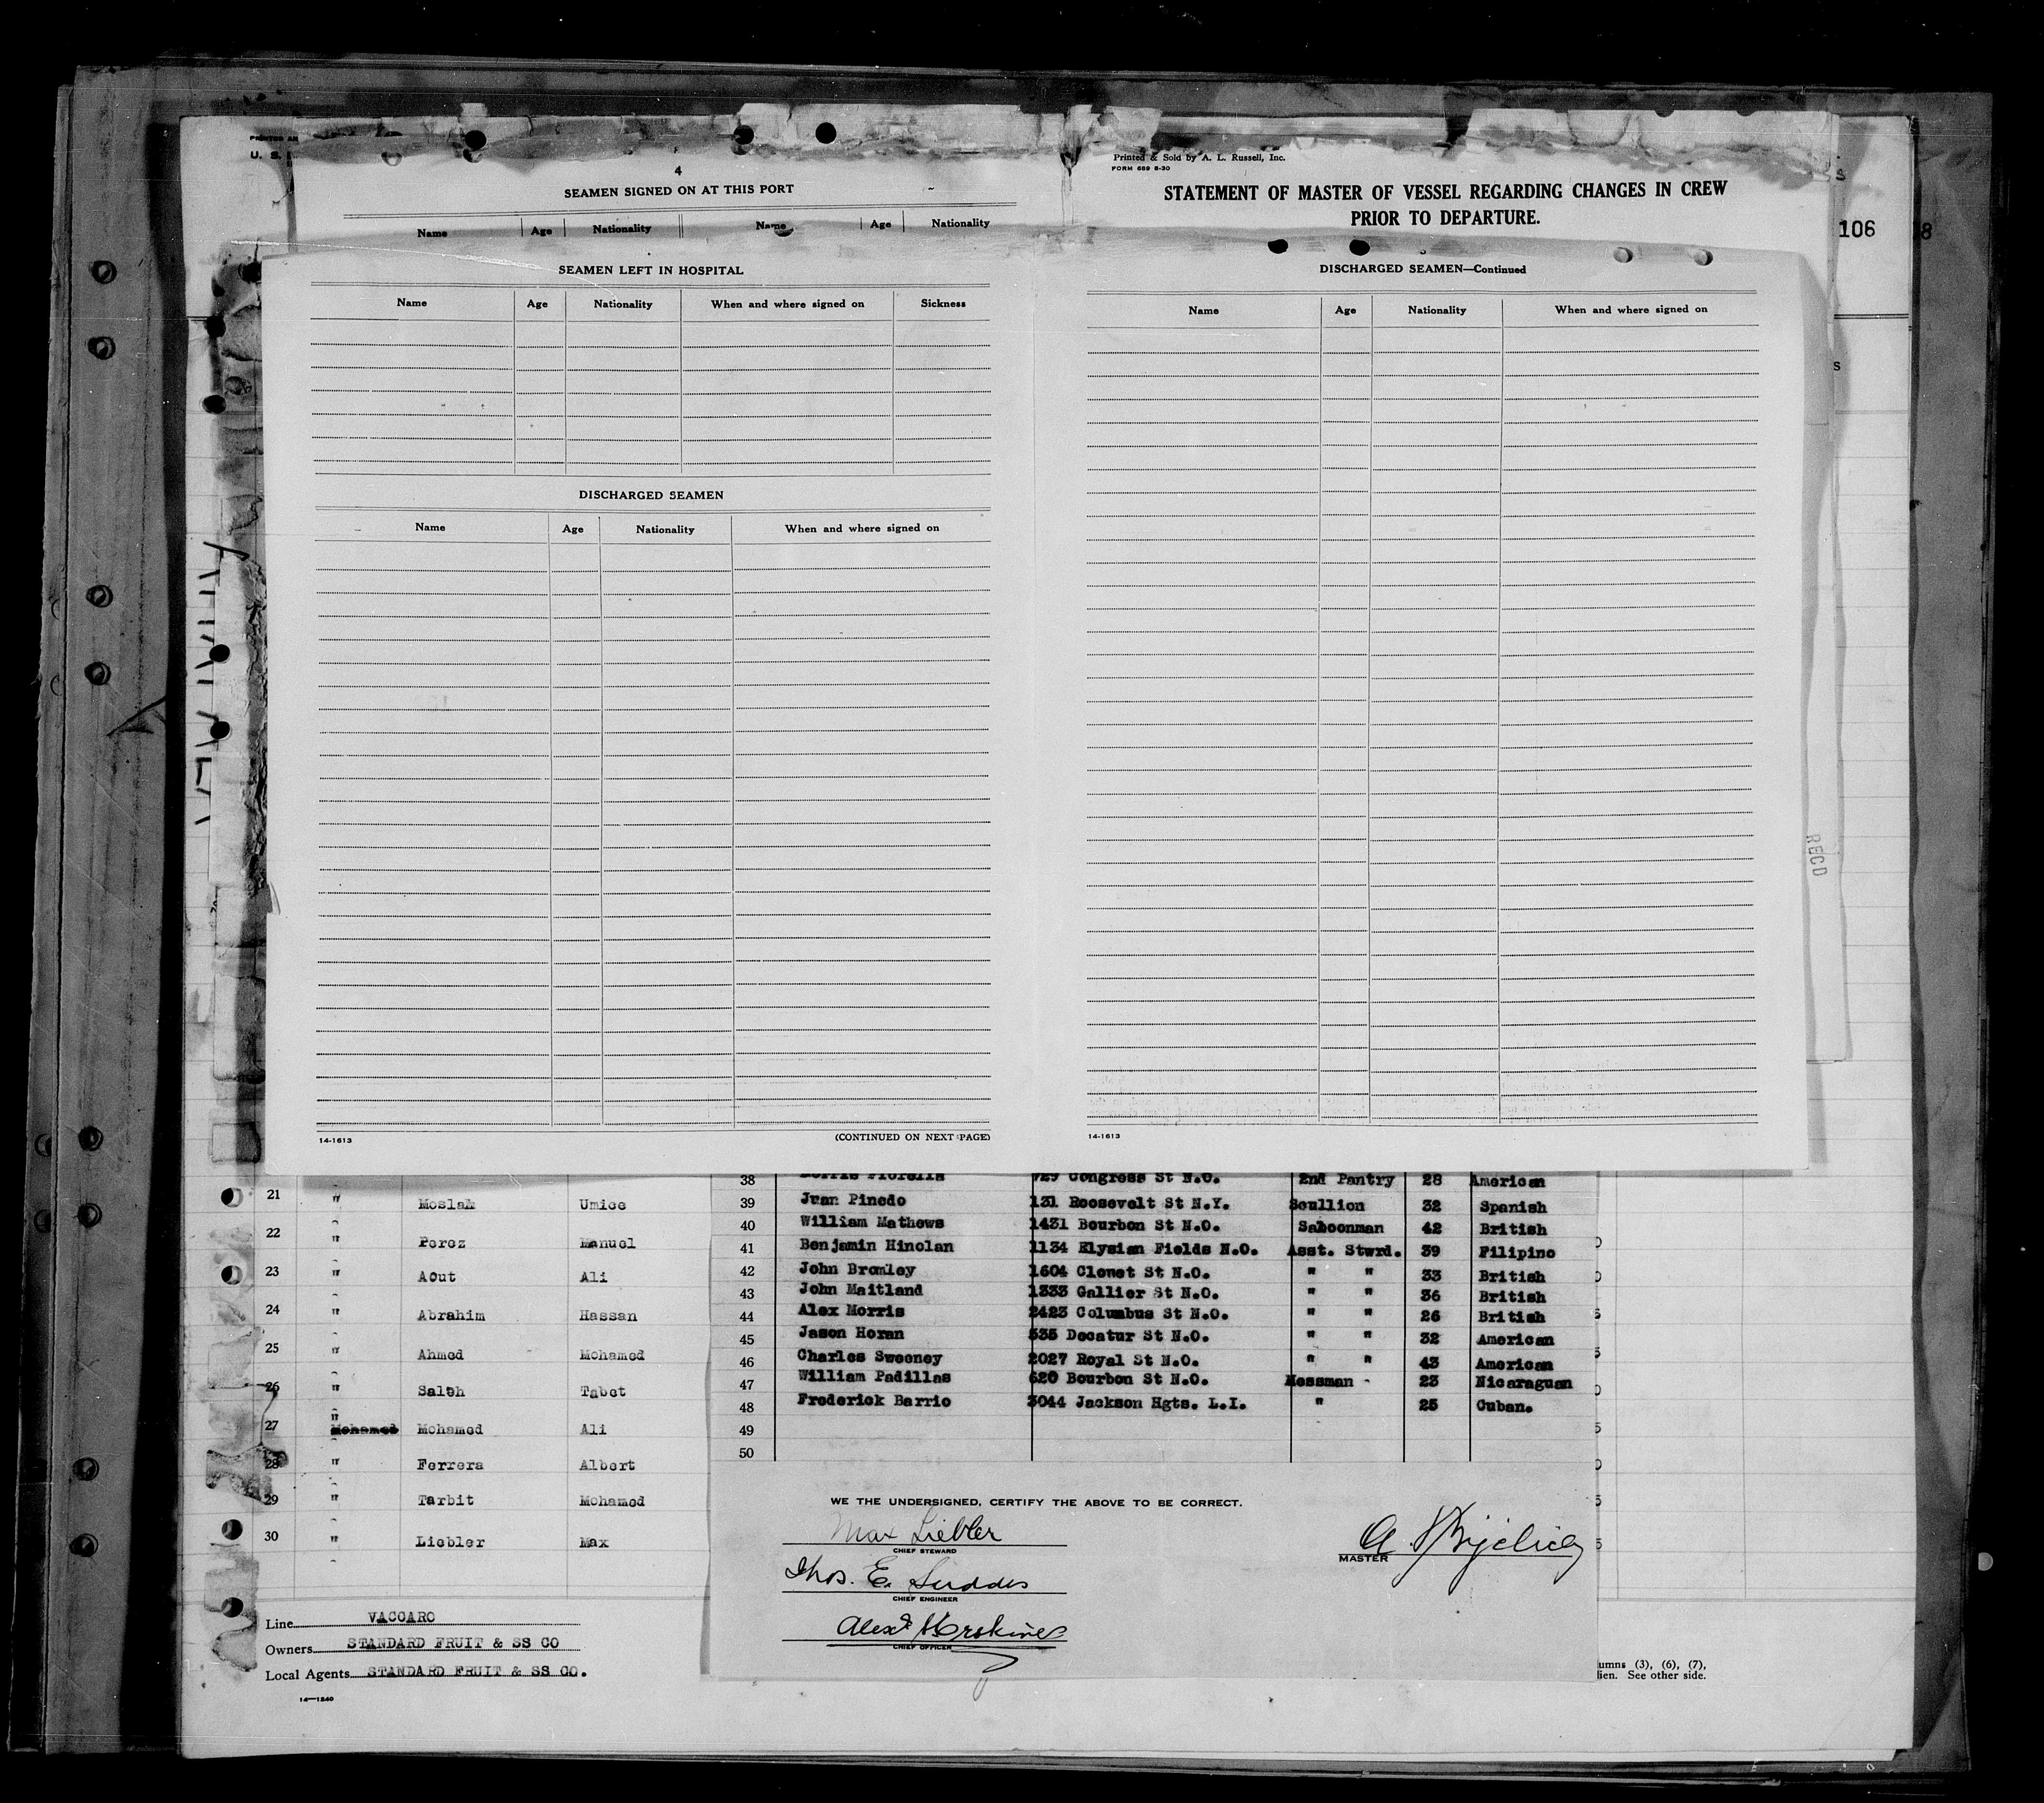 U. S.
4
SEAMEN SIGNED ON AT THIS PORT
Name Age Nationality Name Age Nationality
Printed & Sold by A. L. Russell, Inc.
FORM 689 8-30
STATEMENT OF MASTER OF VESSEL REGARDING CHANGES IN CREW
PRIOR TO DEPARTURE.
106 8
SEAMEN LEFT IN HOSPITAL
Name Age Nationality When and where signed on Sickness
DISCHARGED SEAMEN
Name Age Nationality When and where signed on
14-1613 (CONTINUED ON NEXT PAGE)
DISCHARGED SEAMEN—Continued
Name Age Nationality When and where signed on
14-1613
REC'D
21 " Moslam Umice
22 " Perez Manuel
23 " Aout Ali
24 " Abrahim Hassan
25 " Ahmed Mohamed
26 " Saleh Tabet
27 " Mohamed Mohamed Ali
28 " Ferrera Albert
29 " Tarbit Mohamed
30 " Liebler Max
Line VACCARO
Owners STANDARD FRUIT & SS CO
Local Agents STANDARD FRUIT & SS CO.
14—1240
38 729 Congress St N.O. 2nd Pantry 28 American
39 Juan Pinedo 131 Roosevelt St N.Y. Scullion 32 Spanish
40 William Mathews 1431 Bourbon St N.O. Saloonman 42 British
41 Benjamin Hinolan 1134 Elysian Fields N.O. Asst. Stwrd. 39 Filipino
42 John Bromley 1604 Clouet St N.O. " " 33 British
43 John Maitland 1333 Gallier St N.O. " " 36 British
44 Alex Morris 2423 Columbus St N.O. " " 26 British
45 Jason Horan 535 Decatur St N.O. " " 32 American
46 Charles Sweeney 2027 Royal St N.O. " " 43 American
47 William Padillas 620 Bourbon St N.O. Messman 23 Nicaraguan
48 Frederick Barrio 3044 Jackson Hgts. L.I. " 25 Cuban.
49
50
WE THE UNDERSIGNED, CERTIFY THE ABOVE TO BE CORRECT.
Max Liebler
CHIEF STEWARD
MASTER
Thos. E.
CHIEF ENGINEER
Alexd Erskine
CHIEF OFFICER
umns (3), (6), (7),
lien. See other side.